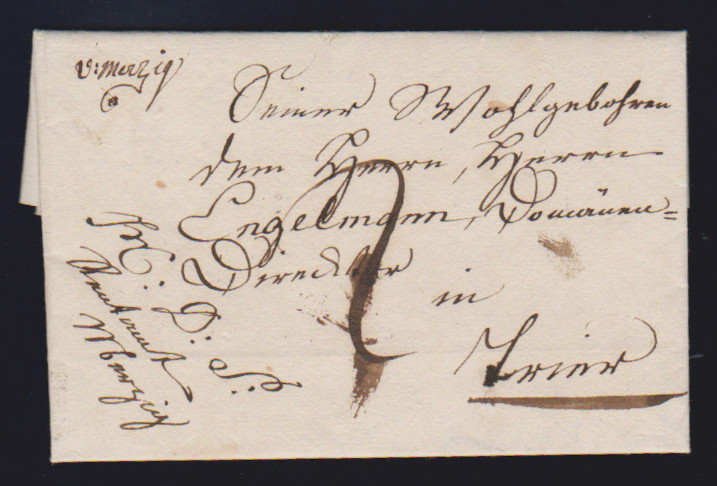 v: Merzig
Seiner Wohlgebohren
dem Herrn, Herrn
Engelmann, Domänen=
Direcktor
in
Trier
D: S:
Rentamt
Merzig